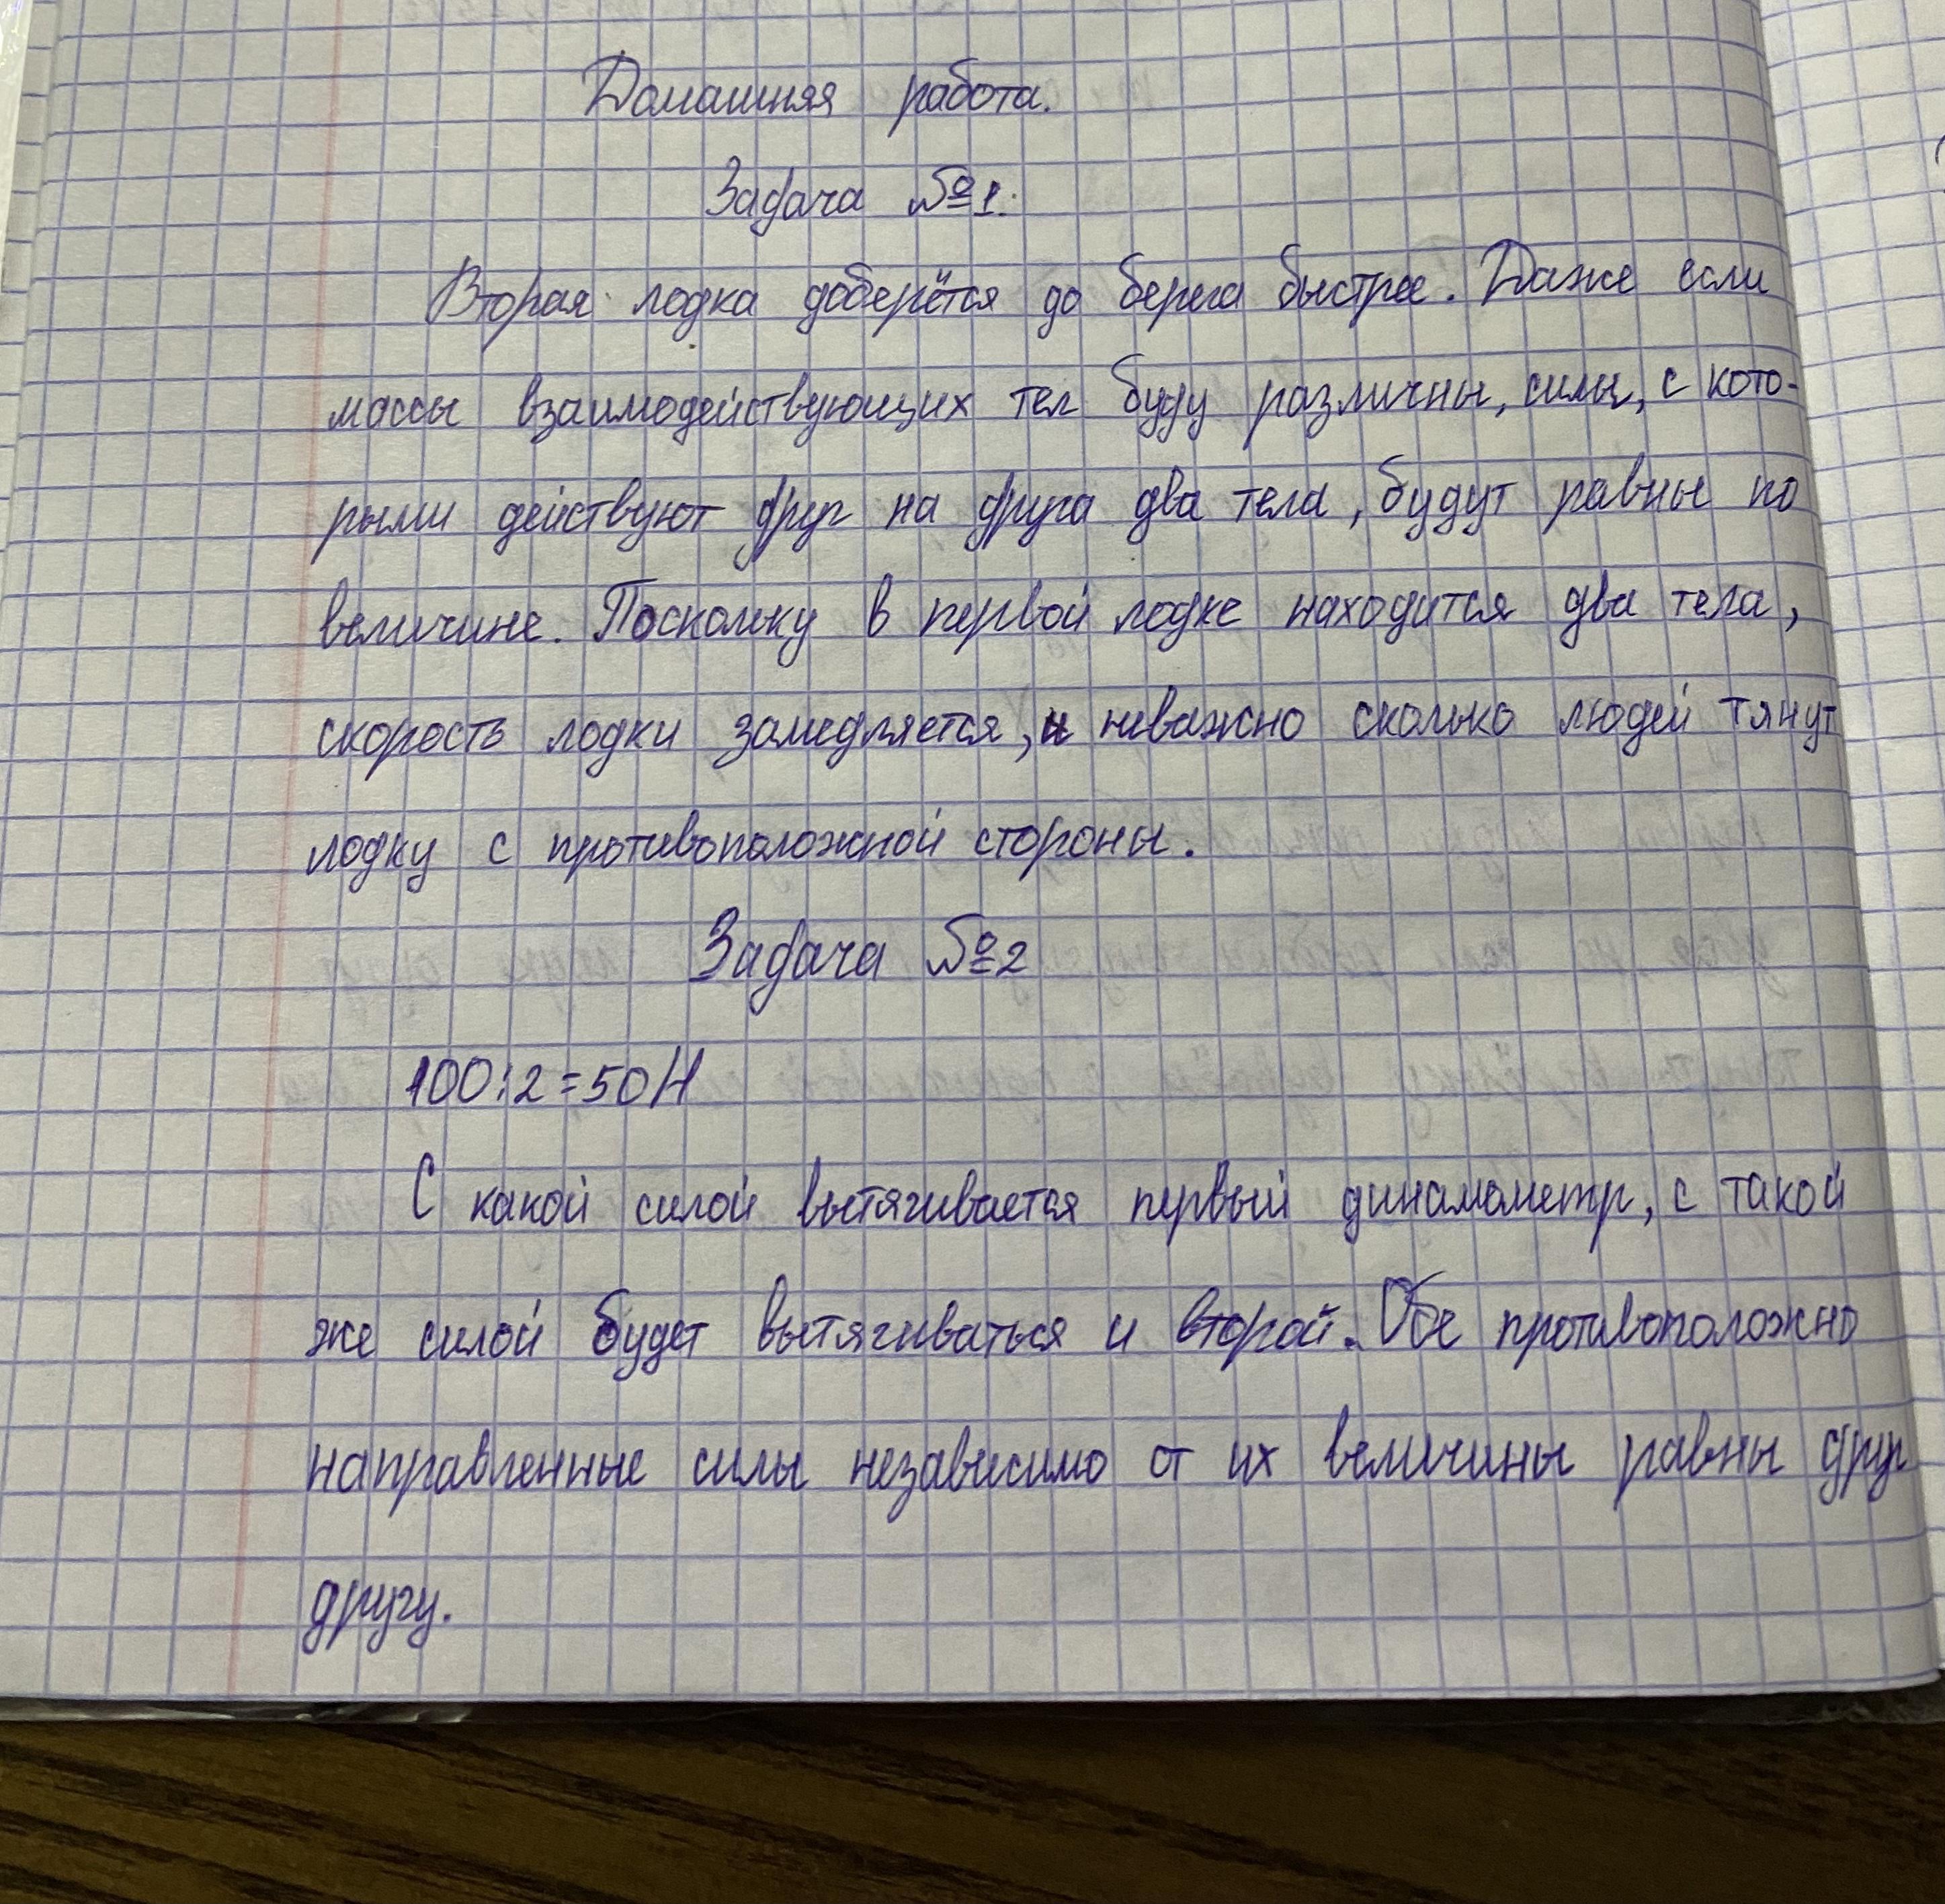 Домашняя работа.
Задача №1.
Вторая лодка доберётся до берега быстрее. Даже если
массы взаимодействующих тел буду различны, силы, с кото-
рыми действуют друг на друга два тела, будут равны по
величине. Поскольку в первой лодке находится два тела,
скорость лодки замедляется, и неважно сколько людей тянут
лодку с противоположной стороны.
Задача №2
100:2=50Н
С какой силой вытягивается первый динамометр, с такой
же силой будет вытягиваться и второй. Обе противоположно
направленные силы независимо от их величины равны друг
другу.